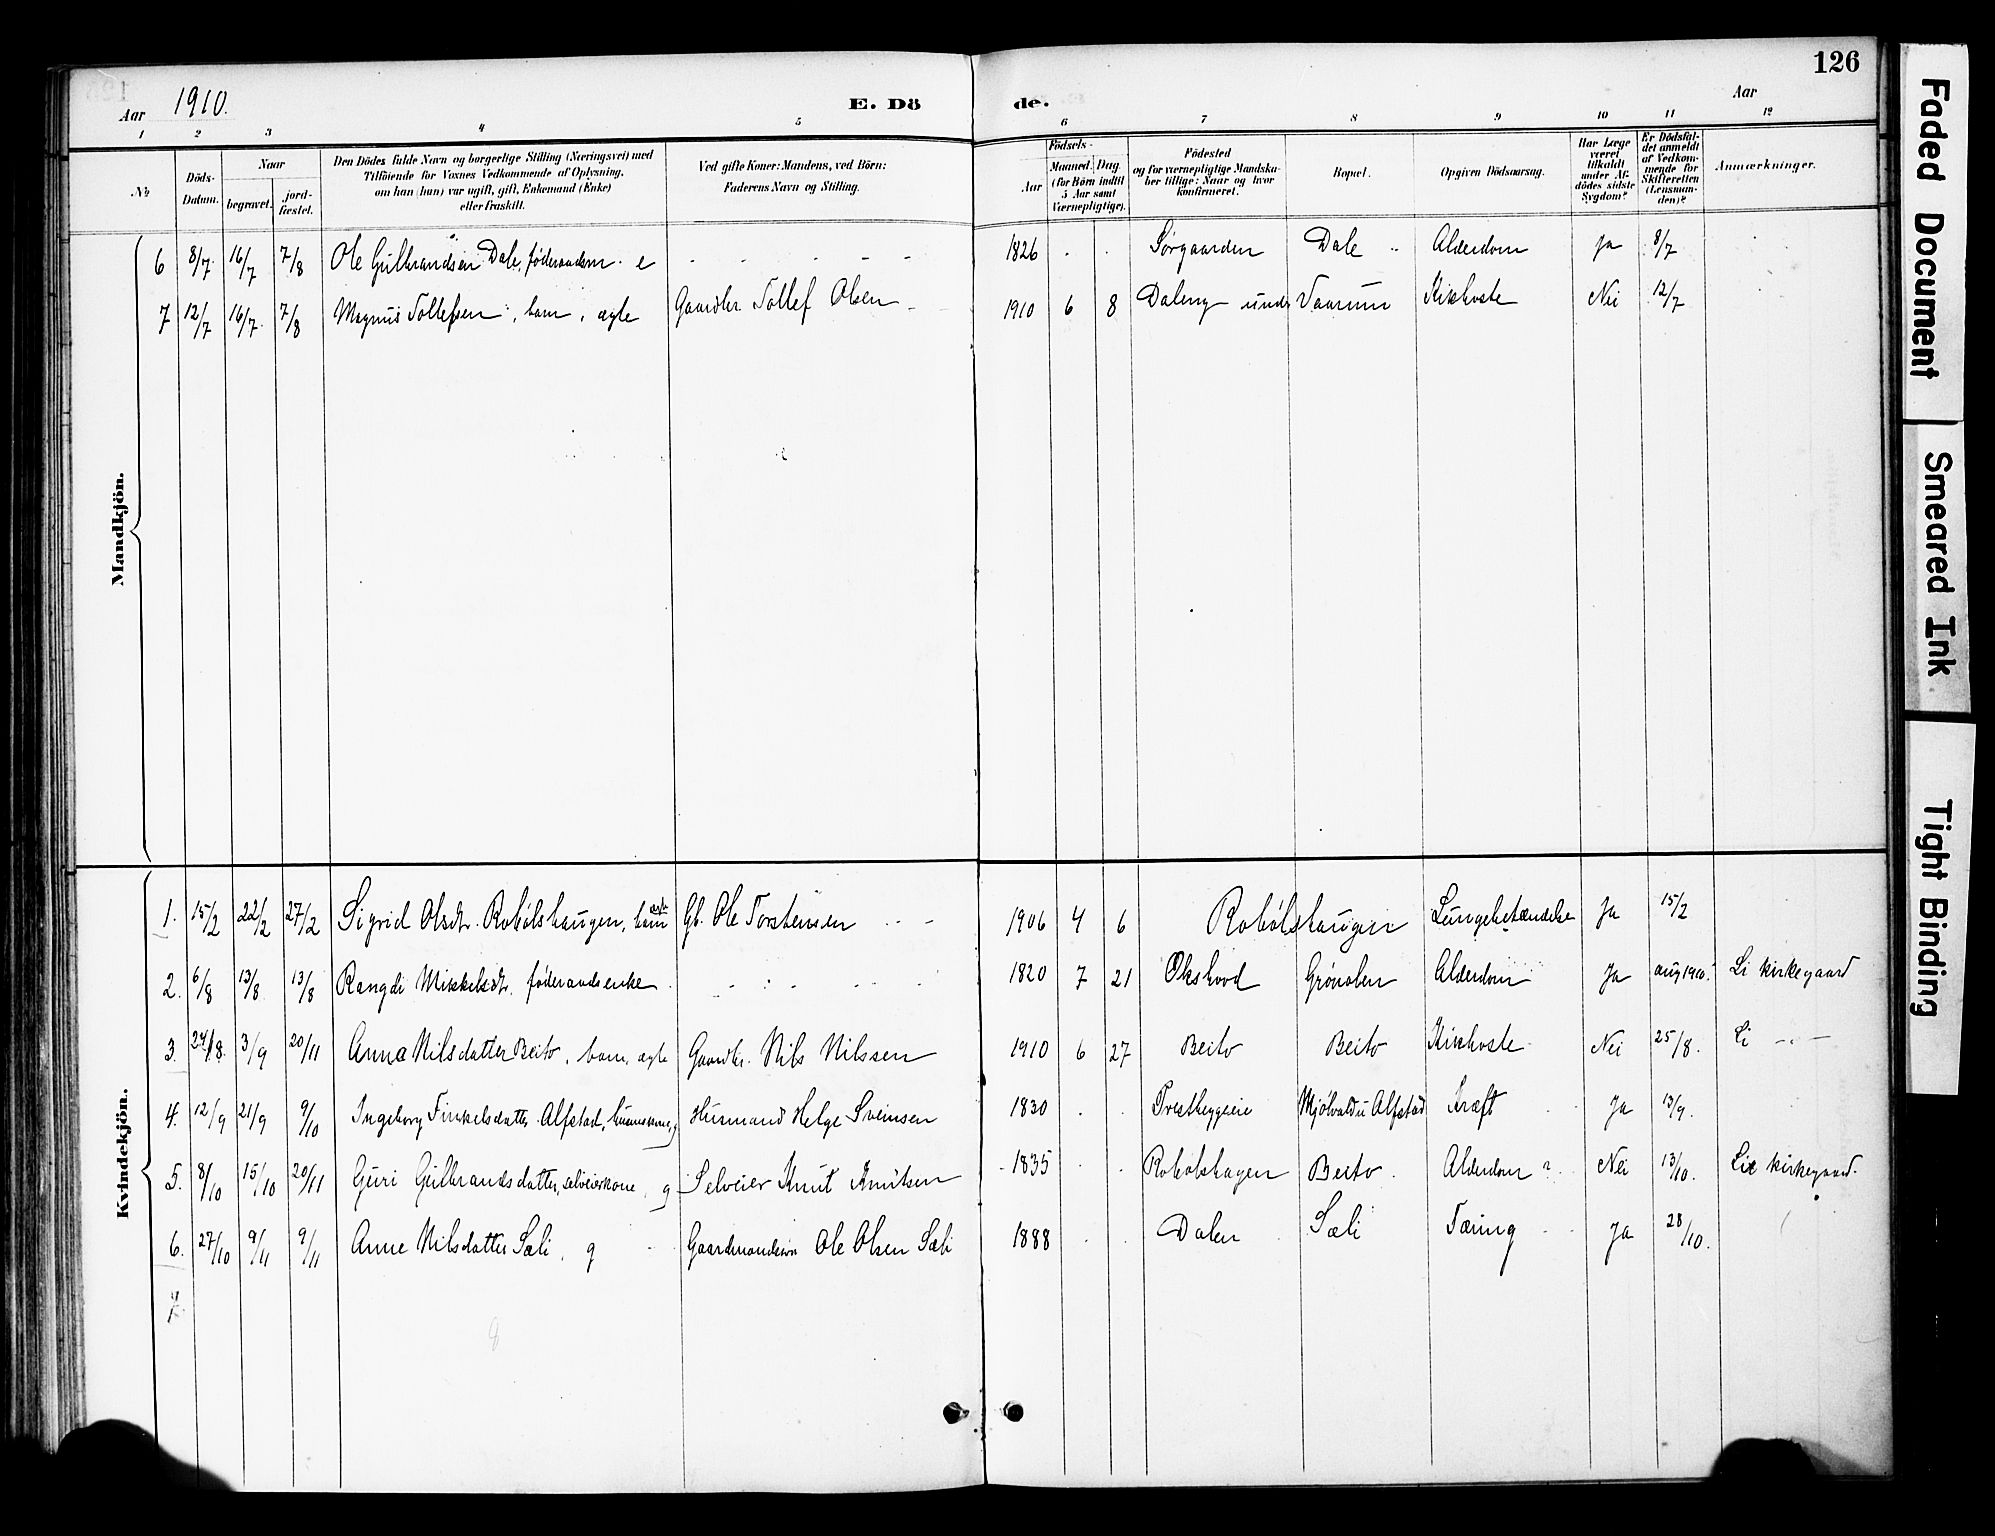 126
Aar 1910. E. Dö de. Aar
1 2 3 4 5 6 7 8 9 10 11 12
No.
Döds-Datum.
Naar
begravet. jord-fæstet.
Den Dödes fulde Navn og borgerlige Stilling (Næringsvei) med
Tilföiende for Voxnes Vedkommende af Oplysning,
om han (hun) var ugift, gift, Enkemand (Enke)
eller fraskilt.
Ved gifte Koner: Mandens, ved Börn:
Faderens Navn og Stilling.
Födsels-
Aar Maaned. Dag.
(for Börn indtil
5 Aar samt
Værnepligtige).
Födested
og for værnepligtige Mandska-
ber tillige: Naar og hvor
konfirmeret.
Bopæl.
Opgiven Dödsaarsag.
Har Læge
været
tilkaldt
under Af-
dödes sidste
Sygdom?
Er Dödsfal-
det anmeldt
af Vedkom-
mende for
Skifteretten
(Lensman-
den)?
Anmærkninger.
Mandkjön.
6 8/7 16/7 7/8 Ole Gulbrandsen Dale, føderaadsm. e - - - - - 1826 . . Sørgaarden Dale " Alderdom Ja 8/7
7 12/7 16/7 7/8 Magnus Tollefsen, barn, ægte Gaardbr. Tollef Olsen - - 1910 6 8 Daleng under Vaarum Kikhoste Nei 12/7
Kvindekjön.
1. 15/2 22/2 27/2 Sigrid Olsdtr. Robølshaugen, barn ægte Gb. Ole Torstensen - - 1906 4 6 Robølshaugen Lungebetændelse Ja 15/2
2. 6/8 13/8 13/8 Rangdi Mikkelsdtr. føderaadsenke - - - - 1820 7 21 Okshovd Grønolen Alderdom Ja aug 1910. Li kirkegaard
3. 24/8. 3/9 20/11 Anna Nilsdatter Beito, barn, ægte Gaardbr. Nils Nilssen 1910 6 27 Beito Beito Kikhoste Nei 25/8. Li - " -
4. 12/9 21/9 9/10 Ingeborg Finkelsdatter Alfstad, husmkone, g Husmand Helge Sveinsen 1830 . . Prestbyggeie Mjølvold u Alfstad Kræft Ja 13/9.
5. 8/10 15/10 20/11 Guri Gulbrandsdatter, selveierkone, g Selveier Knut Knutsen 1835 . . Robølshagen Beito. Alderdom ? Nei 13/10. Lie kirkegaard.
6. 27/10 9/11 9/11 Anne Nilsdatter Sæli, g Gaardmandssøn Ole Olsen Sæli 1888 . . Dalen Sæli Tæring Ja 28/10.
7.
8
Faded Document
Smeared Ink
Tight Binding